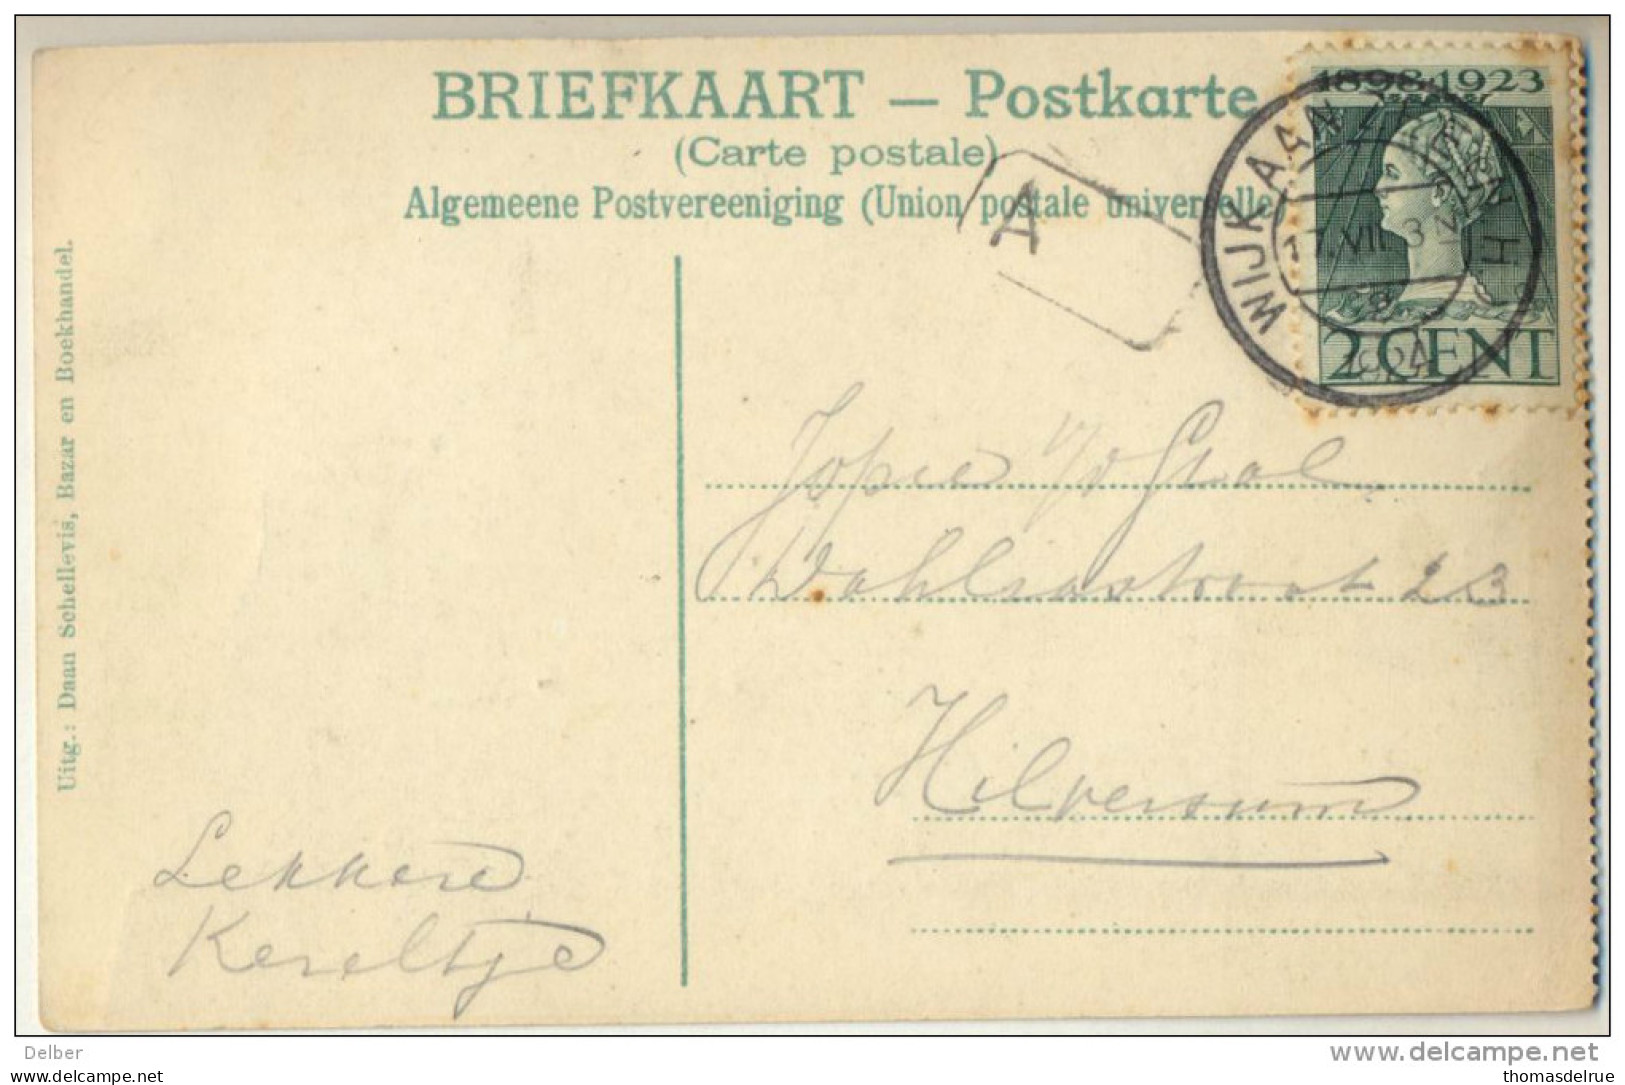 BRIEFKAART — Postkarte
(Carte postale)
Algemeene Postvereeniging (Union postale universelle
1898-1923
2 CENT
WIJK AAN ZEE
1924
A
Uitg.: Daan Schellevis, Bazar en Boekhandel.
Jopie v/d Stal
Dahliastraat 23
Hilversum
Lekkere
Kereltje
Delber
www.delcampe.net
thomasdelrue